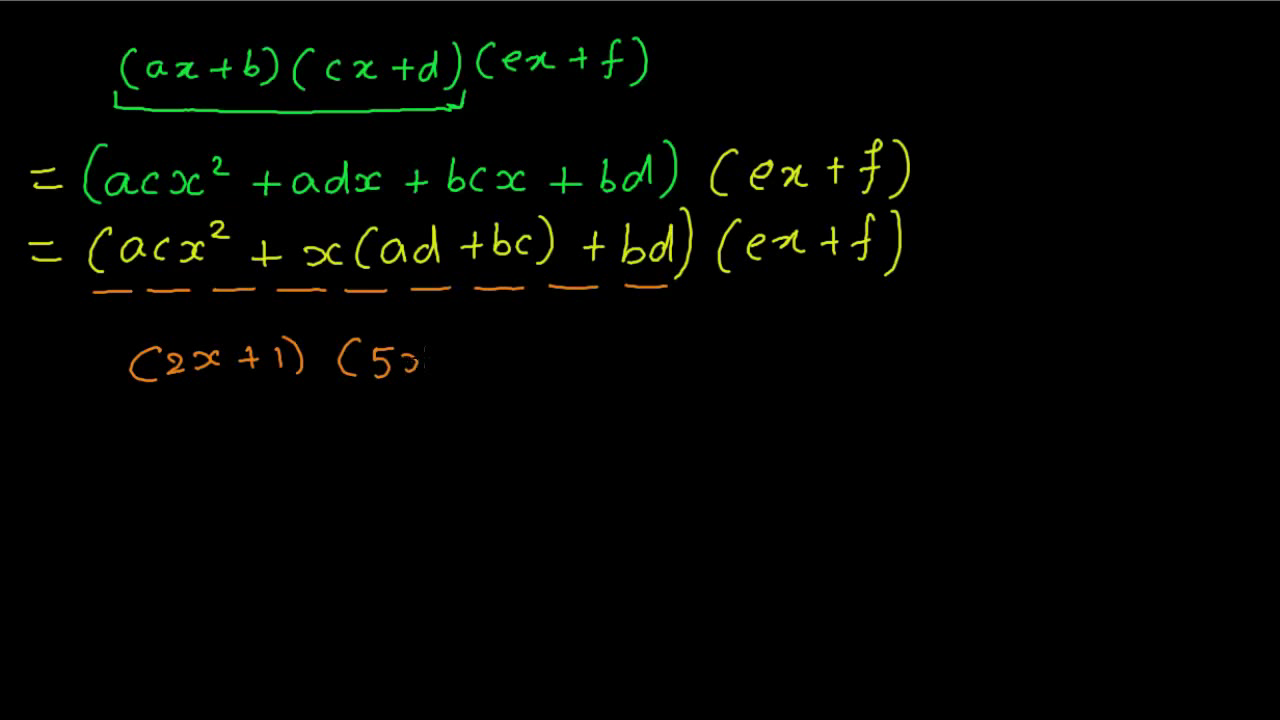 (ax+b)(cx+d)(ex+f)
= (acx² + adx + bcx + bd) (ex+f)
= (acx² + x(ad+bc) + bd) (ex+f)
(2x+1) (5x